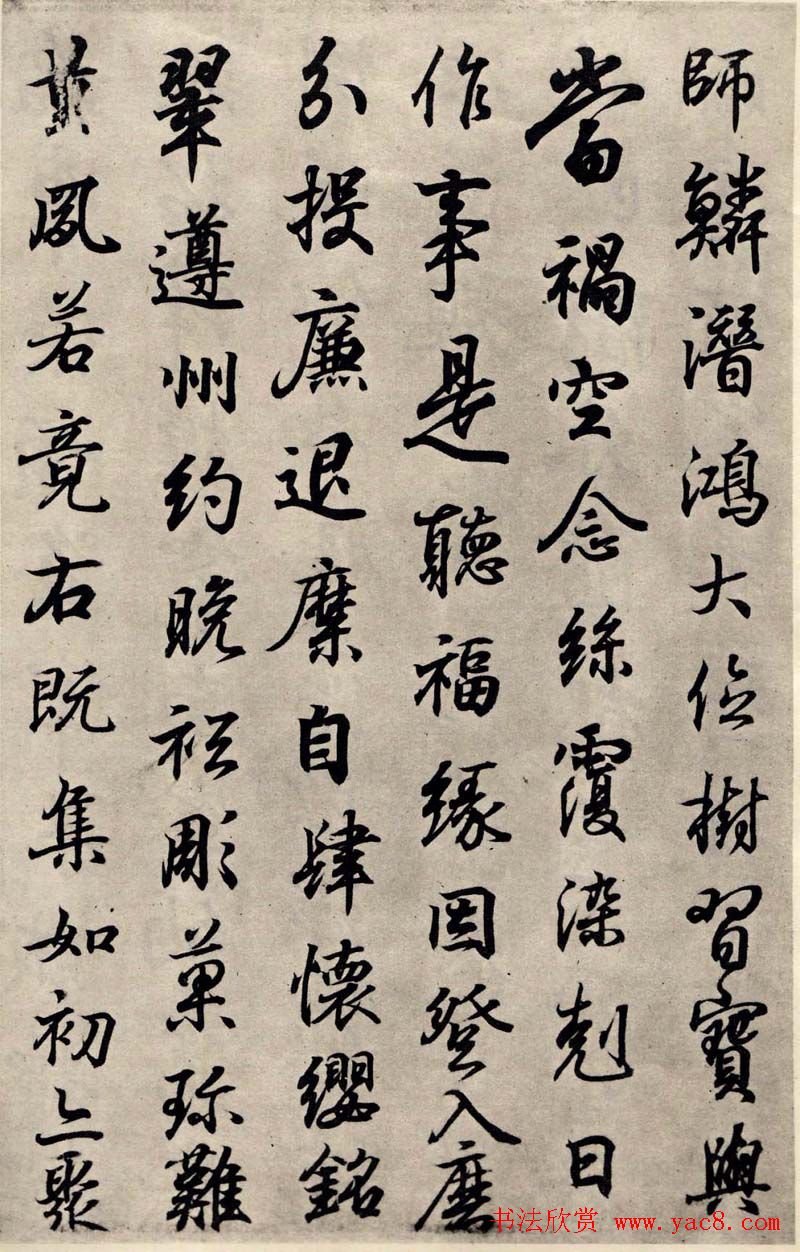 師鱗潛鴻大位樹習寶與
當禍空念絲覆染剋日
作事是聽福緣因登入
分投廉退縻自肆懷纓銘
翠遵州約晚彫菓珍難
鳳若竟右既集如初亦聚
书法欣赏 www.yac8.com